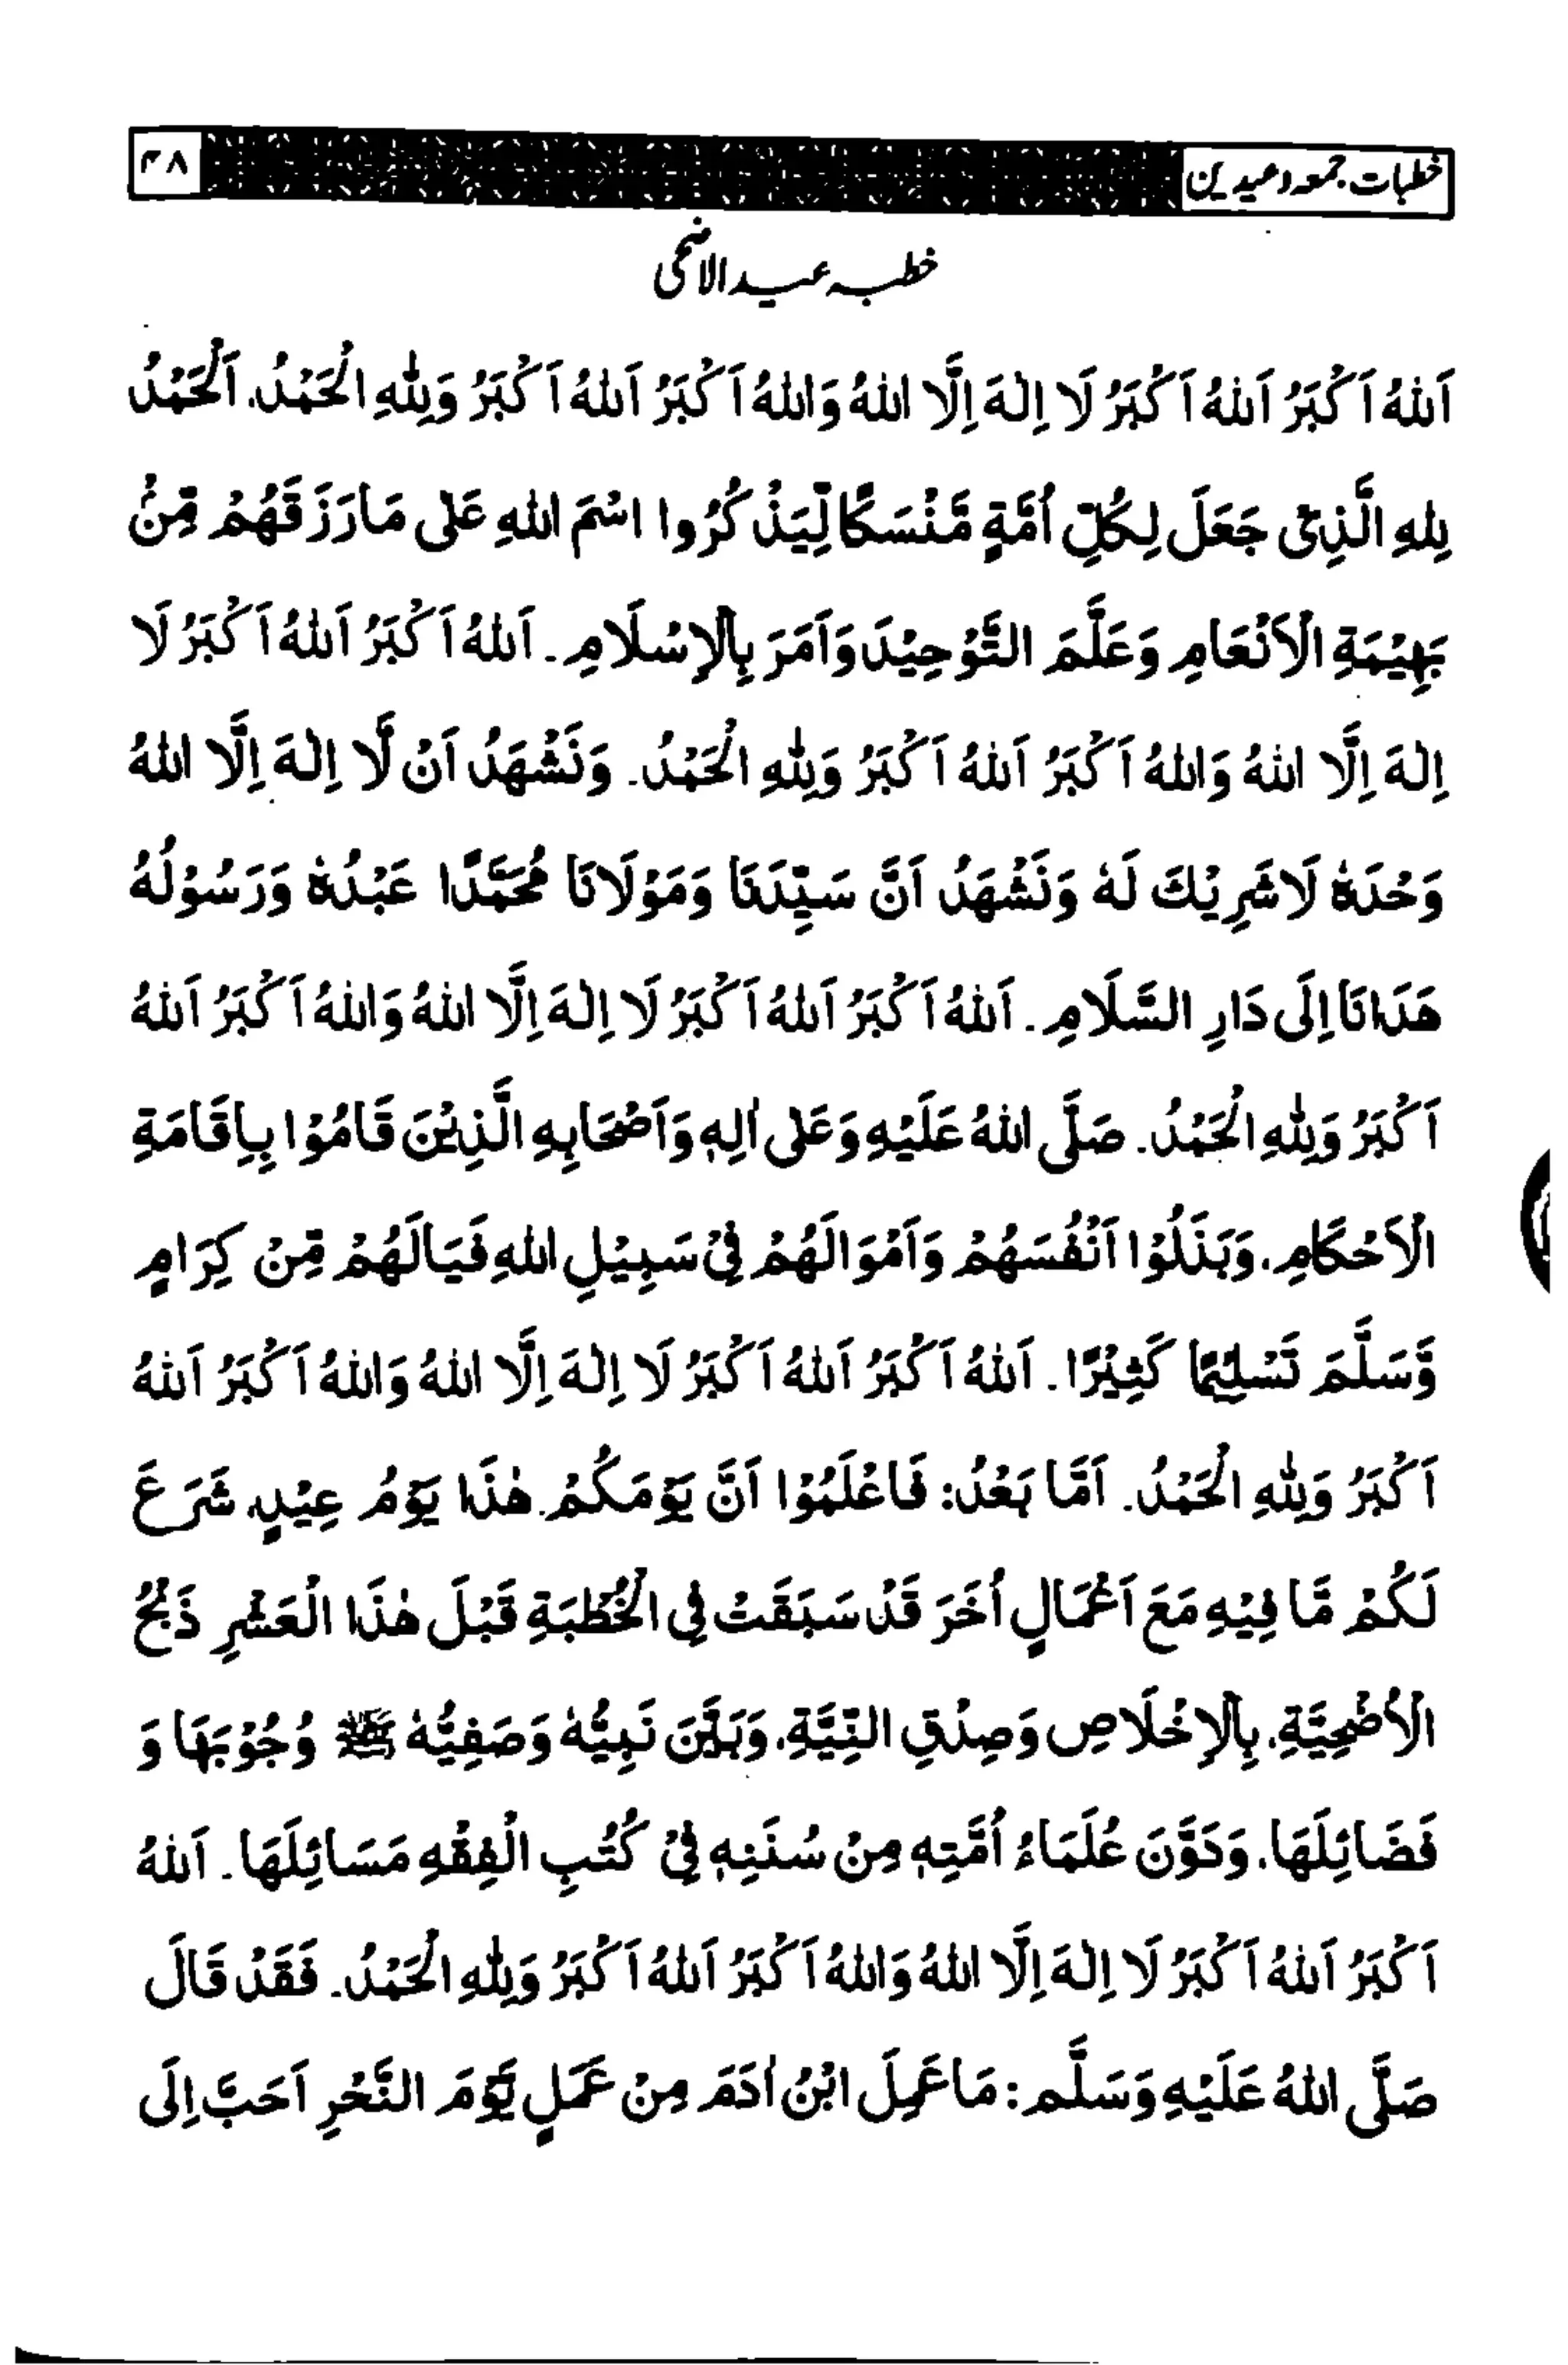 خطبات جمعہ و عیدین ۳۸
خطبہ عید الاضحی
اَللهُ اَكْبَرُ اَللهُ اَكْبَرُ لَا اِلٰهَ اِلَّا اللهُ وَاللهُ اَكْبَرُ اَللهُ اَكْبَرُ وَلِلّٰهِ الْحَمْدُ. اَلْحَمْدُ
لِلهِ الَّذِىْ جَعَلَ لِكُلِّ اُمَّةٍ مَّنْسَكًا لِّيَذْكُرُوا اسْمَ اللهِ عَلٰى مَا رَزَقَهُمْ مِّنْۢ
بَهِيْمَةِ الْاَنْعَامِ وَعَلَّمَ التَّوْحِيْدَ وَاَمَرَ بِالْاِسْلَامِ. اَللهُ اَكْبَرُ اَللهُ اَكْبَرُ لَا
اِلٰهَ اِلَّا اللهُ وَاللهُ اَكْبَرُ اَللهُ اَكْبَرُ وَلِلّٰهِ الْحَمْدُ. وَنَشْهَدُ اَنْ لَّا اِلٰهَ اِلَّا اللهُ
وَحْدَهٗ لَا شَرِيْكَ لَهٗ وَنَشْهَدُ اَنَّ سَيِّدَنَا وَمَوْلَانَا مُحَمَّدًا عَبْدُهٗ وَرَسُوْلُهُ
هَدَانَا اِلَى دَارِ السَّلَامِ. اَللهُ اَكْبَرُ اَللهُ اَكْبَرُ لَا اِلٰهَ اِلَّا اللهُ وَاللهُ اَكْبَرُ اَللهُ
اَكْبَرُ وَلِلّٰهِ الْحَمْدُ. صَلَّى اللهُ عَلَيْهِ وَعَلٰى اٰلِهٖ وَاَصْحَابِهِ الَّذِيْنَ قَامُوْا بِاِقَامَةِ
الْاَحْكَامِ. وَبَذَلُوْا اَنْفُسَهُمْ وَاَمْوَالَهُمْ فِىْ سَبِيْلِ اللهِ فَيَالَهُمْ مِّنْ كِرَامٍ
وَّسَلَّمَ تَسْلِيْمًا كَثِيْرًا. اَللهُ اَكْبَرُ اَللهُ اَكْبَرُ لَا اِلٰهَ اِلَّا اللهُ وَاللهُ اَكْبَرُ اَللهُ
اَكْبَرُ وَلِلّٰهِ الْحَمْدُ. اَمَّا بَعْدُ: فَاعْلَمُوْا اَنَّ يَوْمَكُمْ هٰذَا يَوْمُ عِيْدٍ، شَرَعَ
لَكُمْ مَّا فِيْهِ مَعَ اَعْمَالٍ اُخَرَ قَدْ سَبَقَتْ فِى الْخُطْبَةِ قَبْلَ هٰذَا الْعَشْرِ ذَبْحُ
الْاُضْحِيَّةِ. بِالْاِخْلَاصِ وَصِدْقِ النِّيَّةِ. وَبَيَّنَ نَبِيُّهٗ وَصَفِيُّهٗ ﷺ وُجُوْبَهَا وَ
فَضَائِلَهَا. وَدَوَّنَ عُلَمَاءُ اُمَّتِهٖ مِنْ سُنَنِهٖ فِىْ كُتُبِ الْفِقْهِ مَسَائِلَهَا. اَللهُ
اَكْبَرُ اَللهُ اَكْبَرُ لَا اِلٰهَ اِلَّا اللهُ وَاللهُ اَكْبَرُ اَللهُ اَكْبَرُ وَلِلّٰهِ الْحَمْدُ. فَقَدْ قَالَ
صَلَّى اللهُ عَلَيْهِ وَسَلَّم: مَا عَمِلَ ابْنُ اٰدَمَ مِنْ عَمَلٍ يَّوْمَ النَّحْرِ اَحَبَّ اِلَى